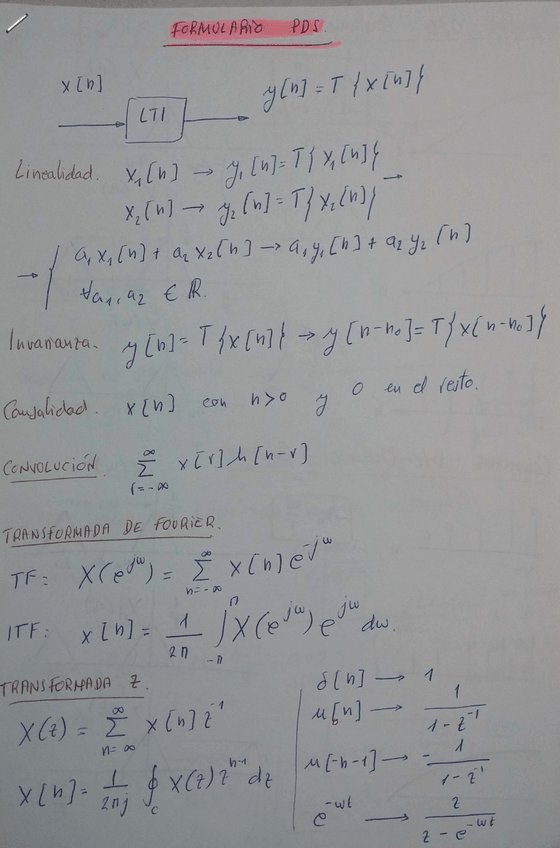 FORMULARIO PDS.
x[n]
LTI
y[n] = T{x[n]}
Linealidad. x₁[n] → y₁[n] = T{x₁[n]}
x₂[n] → y₂[n] = T{x₂[n]} →
→ { a₁x₁[n] + a₂x₂[n] → a₁y₁[n] + a₂y₂[n]
∀a₁,a₂ ∈ ℝ.
Invarianza. y[n] = T{x[n]} → y[n-n₀] = T{x[n-n₀]}
Causalidad. x[n] con n>0 y 0 en el resto.
CONVOLUCIÓN. ∞ Σ r=-∞ x[r]h[n-r]
TRANSFORMADA DE FOURIER.
TF: X(e^jω) = ∞ Σ n=-∞ x[n]e^-jω
ITF: x[n] = 1/2π ∫ π -π X(e^jω)e^jω dω.
TRANSFORMADA Z.
X(z) = ∞ Σ n=∞ x[n]z^-1
x[n] = 1/2πj ∮c X(z)z^n-1 dz
δ[n] → 1
u[n] → 1/1-z^-1
u[-n-1] → -1/1-z^-1
e^-wt → z/z-e^-wt